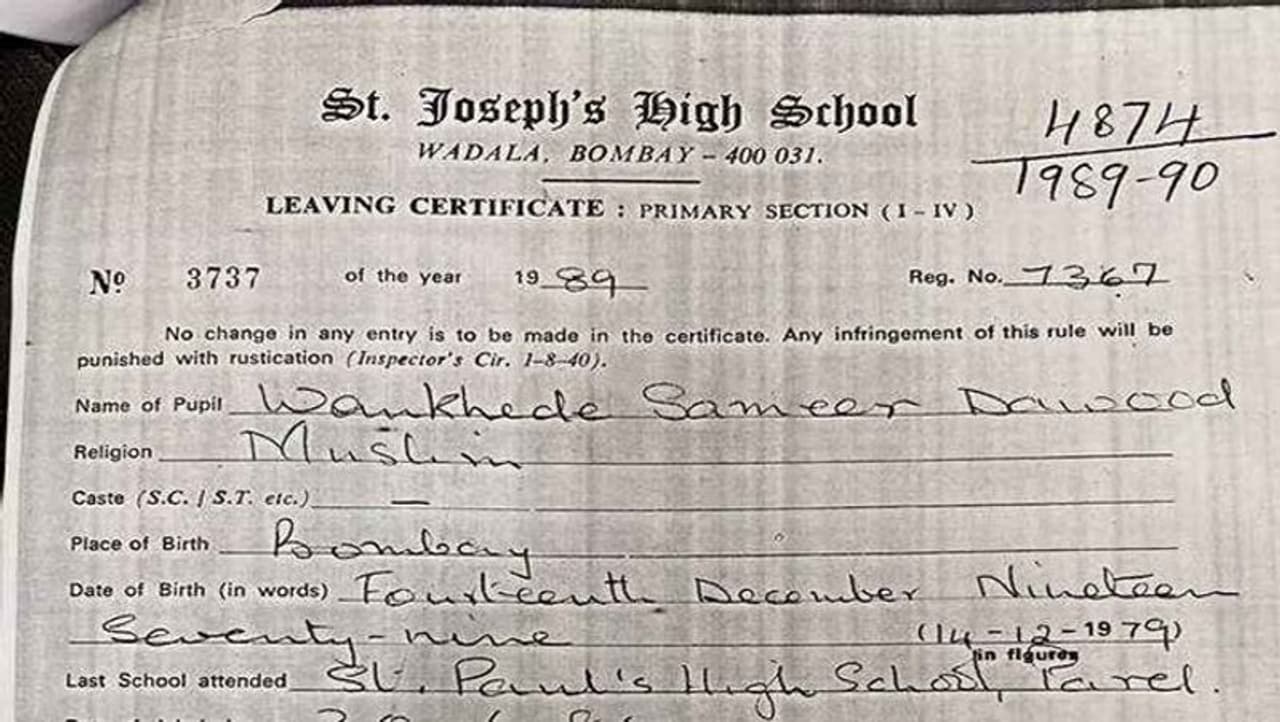 St. Joseph's High School
WADALA, BOMBAY – 400 031.
4874
1989-90
LEAVING CERTIFICATE : PRIMARY SECTION ( I – IV )
No 3737 of the year 1989 Reg. No. 7367
No change in any entry is to be made in the certificate. Any infringement of this rule will be
punished with rustication (Inspector's Cir. 1–8–40).
Name of Pupil Wankhede Sameer Dawood
Religion Muslim
Caste (S.C. / S.T. etc.) —
Place of Birth Bombay
Date of Birth (in words) Fourteenth December Nineteen
Seventy-nine (14-12-1979)
in figures
Last School attended St. Paul's High School, Parel.